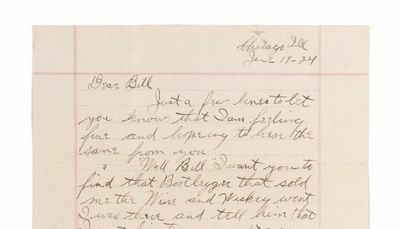 Chicago Ill
June 17-24
Dear Bill
Just a few lines to let
you know that I am feeling
fine and hopeing to hear the
same from you.
Well Bill I want you to
find that Bootlegger that sold
me the Wine and Wiskey went
I was there and tell him that